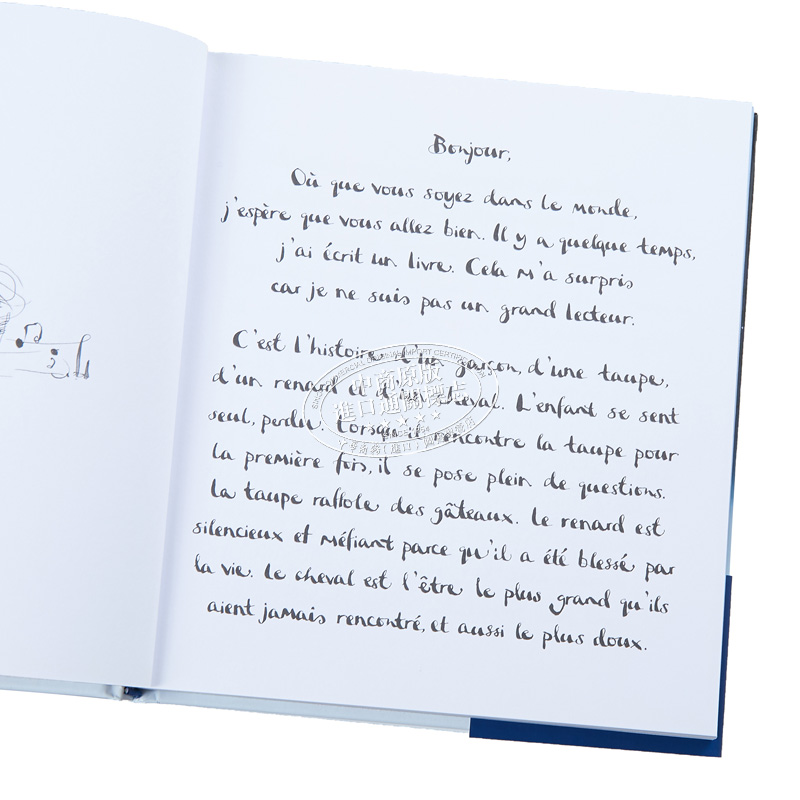 Bonjour,
Où que vous soyez dans le monde,
j'espère que vous allez bien. Il y a quelque temps,
j'ai écrit un livre. Cela m'a surpris
car je ne suis pas un grand lecteur.
C'est l'histoire d'un garçon, d'une taupe,
d'un renard et d'un cheval. L'enfant se sent
seul, perdu. Lorsqu'il rencontre la taupe pour
la première fois, il se pose plein de questions.
La taupe raffole des gâteaux. Le renard est
silencieux et méfiant parce qu'il a été blessé par
la vie. Le cheval est l'être le plus grand qu'ils
aient jamais rencontré, et aussi le plus doux.
中商原版